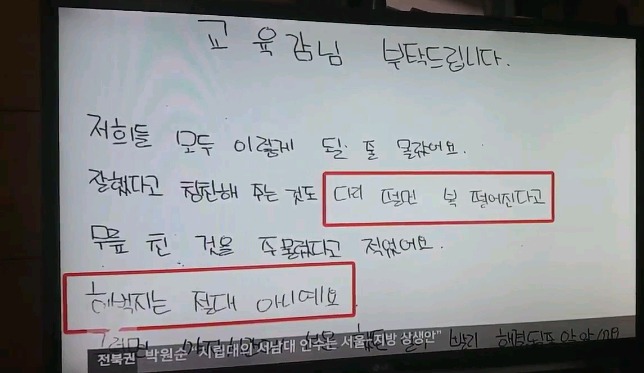 교육감님 부탁드립니다.
저희들 모두 이렇게 될 줄 몰랐어요.
잘했다고 칭찬해 주는 것도 다리 떨면 복 떨어진다고
무릎 친 것을 주물렀다고 적었어요.
절대 아니예요
전북권 박원순 "시립대의 서남대 인수는 서울-지방 상생안"